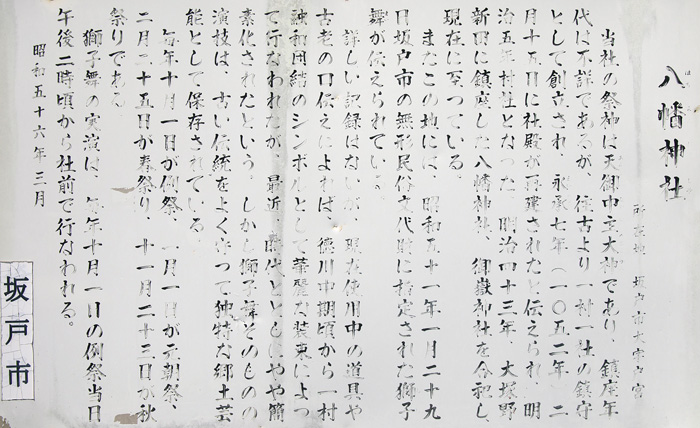 八幡神社
所在地 坂戸市大字戸宮
当社の祭神は天御中主大神であり、鎮座年
代は不詳であるが、往古より一村一社の鎮守
として創立され、永承七年(一〇五二年)二
月十五日に社殿が再建されたと伝えられ、明
治五年村社となった。明治四十三年、大塚野
新田に鎮座した八幡神社、御嶽神社を合祀し、
現在に至っている。
またこの地には、昭和五十一年一月二十九
日坂戸市の無形民俗文化財に指定された獅子
舞が伝えられている。
詳しい記録はないが、現在使用中の道具や
古老の口伝えによれば、徳川中期頃から一村
融和団結のシンボルとして華麗な装束によっ
て行なわれたが、最近、時代とともにやや簡
素化されたという。しかし獅子舞そのものの
演技は、古い伝統をよく守って独特な郷土芸
能として保存されている。
毎年十月一日が例祭、一月一日が元朝祭、
二月二十五日が春祭り、十一月二十三日が秋
祭りである。
獅子舞の実演は、毎年十月一日の例祭当日
午後二時頃から社前で行なわれる。
昭和五十六年三月
坂戸市